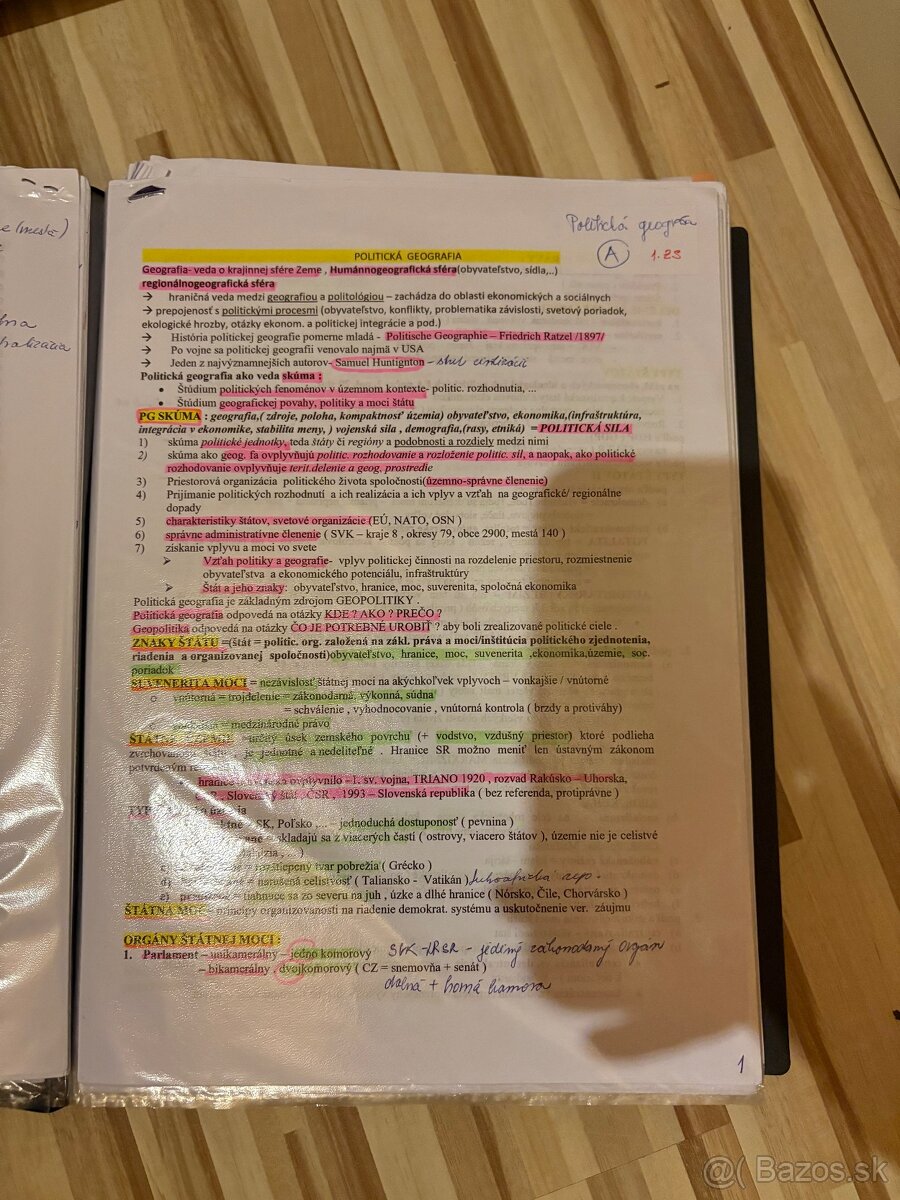 e (mestá)
Politická geografia
A 1.23
POLITICKÁ GEOGRAFIA
Geografia- veda o krajinnej sfére Zeme , Humánnogeografická sféra(obyvateľstvo, sídla,..)
regionálnogeografická sféra
→ hraničná veda medzi geografiou a politológiou – zachádza do oblasti ekonomických a sociálnych
→ prepojenosť s politickými procesmi (obyvateľstvo, konflikty, problematika závislosti, svetový poriadok,
ekologické hrozby, otázky ekonom. a politickej integrácie a pod.)
→ História politickej geografie pomerne mladá - Politische Geographie – Friedrich Ratzel /1897/
→ Po vojne sa politickej geografii venovalo najmä v USA
→ Jeden z najvýznamnejších autorov- Samuel Huntignton – stret civilizácií
Politická geografia ako veda skúma :
• Štúdium politických fenoménov v územnom kontexte- politic. rozhodnutia, ...
• Štúdium geografickej povahy, politiky a moci štátu
PG SKÚMA : geografia,( zdroje, poloha, kompaktnosť územia) obyvateľstvo, ekonomika,(infraštruktúra,
integrácia v ekonomike, stabilita meny, ) vojenská sila , demografia,(rasy, etniká) = POLITICKÁ SILA
1) skúma politické jednotky, teda štáty či regióny a podobnosti a rozdiely medzi nimi
2) skúma ako geog. fa ovplyvňujú politic. rozhodovanie a rozloženie politic. síl, a naopak, ako politické
rozhodovanie ovplyvňuje terit.delenie a geog, prostredie
3) Priestorová organizácia politického života spoločnosti(územno-správne členenie)
4) Prijímanie politických rozhodnutí a ich realizácia a ich vplyv a vzťah na geografické/ regionálne
dopady
5) charakteristiky štátov, svetové organizácie (EÚ, NATO, OSN )
6) správne administratívne členenie ( SVK – kraje 8 , okresy 79, obce 2900, mestá 140 )
7) získanie vplyvu a moci vo svete
➢ Vzťah politiky a geografie- vplyv politickej činnosti na rozdelenie priestoru, rozmiestnenie
obyvateľstva a ekonomického potenciálu, infraštruktúry
➢ Štát a jeho znaky: obyvateľstvo, hranice, moc, suverenita, spoločná ekonomika
Politická geografia je základným zdrojom GEOPOLITIKY .
Politická geografia odpovedá na otázky KDE ? AKO ? PREČO ?
Geopolitika odpovedá na otázky ČO JE POTREBNÉ UROBIŤ ? aby boli zrealizované politické ciele .
ZNAKY ŠTÁTU =(štát = politic. org. založená na zákl. práva a moci/inštitúcia politického zjednotenia,
riadenia a organizovanej spoločnosti)obyvateľstvo, hranice, moc, suvenerita ,ekonomika,územie, soc.
poriadok
SUVENERITA MOCI = nezávislosť štátnej moci na akýchkoľvek vplyvoch – vonkajšie / vnútorné
vnútorná = trojdelenie = zákonodarná, výkonná, súdna
= schválenie , vyhodnocovanie , vnútorná kontrola ( brzdy a protiváhy)
= medzinárodné právo
ŠTÁTNE ÚZEMIE =určitý úsek zemského povrchu (+ vodstvo, vzdušný priestor) ktoré podlieha
je jednotné a nedeliteľné . Hranice SR možno meniť len ústavným zákonom
hranice ovplyvnilo - 1. sv. vojna, TRIANO 1920 , rozvad Rakúsko – Uhorska,
Slovenský štát ČSR , 1993 – Slovenská republika ( bez referenda, protiprávne )
SK, Poľsko ,... – jednoduchá dostuponosť ( pevnina )
skladajú sa z viacerých častí ( ostrovy, viacero štátov ), územie nie je celistvé
= rozštiepený tvar pobrežia ( Grécko )
d) = narušená celistvosť ( Taliansko - Vatikán )
= tiahnuce sa zo severu na juh , úzke a dlhé hranice ( Nórsko, Čile, Chorvársko )
ŠTÁTNA MOC – princípy organizovanosti na riadenie demokrat. systému a uskutočnenie ver. záujmu
ORGÁNY ŠTÁTNEJ MOCI :
1. Parlament – unikamerálny – jedno komorový SVK - NRSR - jediný zákonodarný orgán
– bikamerálny / dvojkomorový ( CZ = snemovňa + senát )
dolná + horná komora
1
@( Bazos.sk